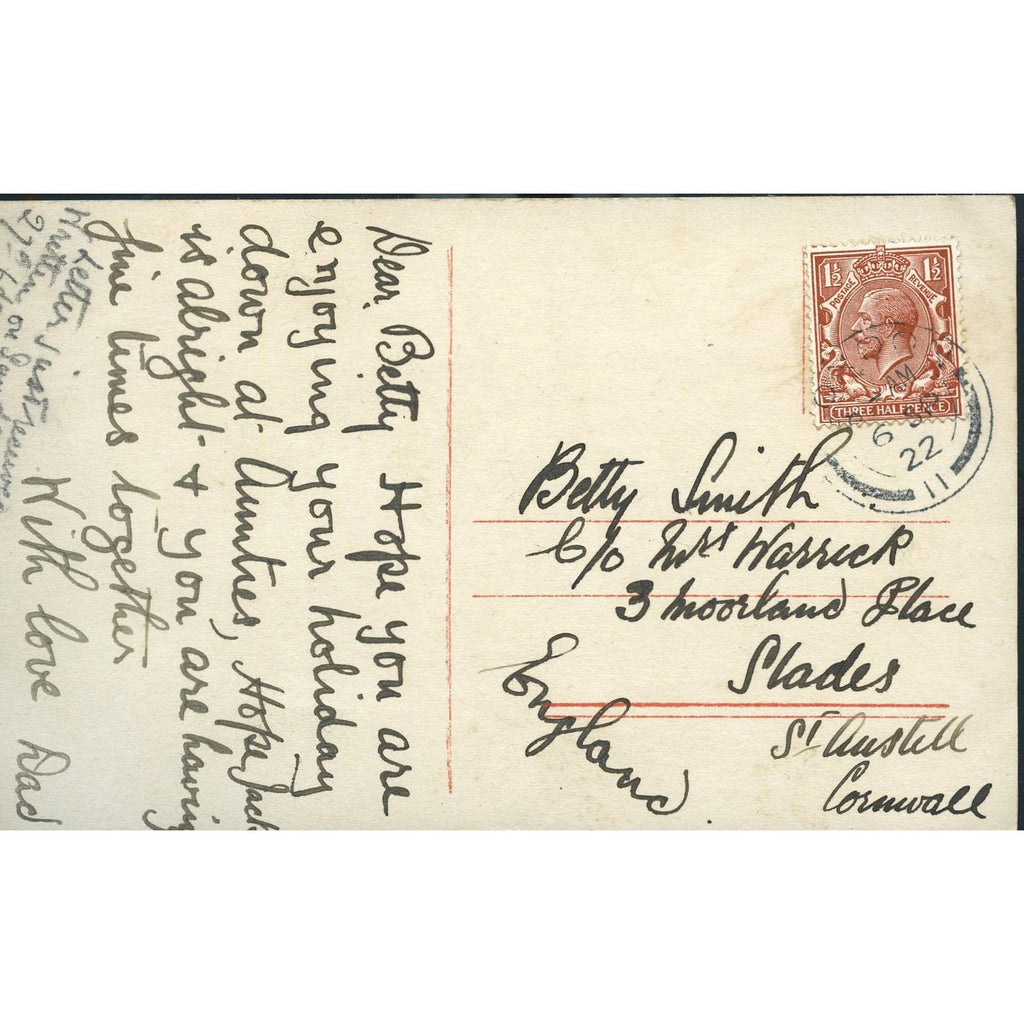 Dear Betty Hope you are
enjoying your holiday
down at Aunties, Hope Jack
is alright & you are having
fine times together
With love Dad
Letter just
27
1½ 1½
POSTAGE REVENUE
THREE HALFPENCE
AM
6
22
11
Betty Smith
C/o Mrs Warrick
3 Moorland Place
Slades
St Austell
Cornwall
England